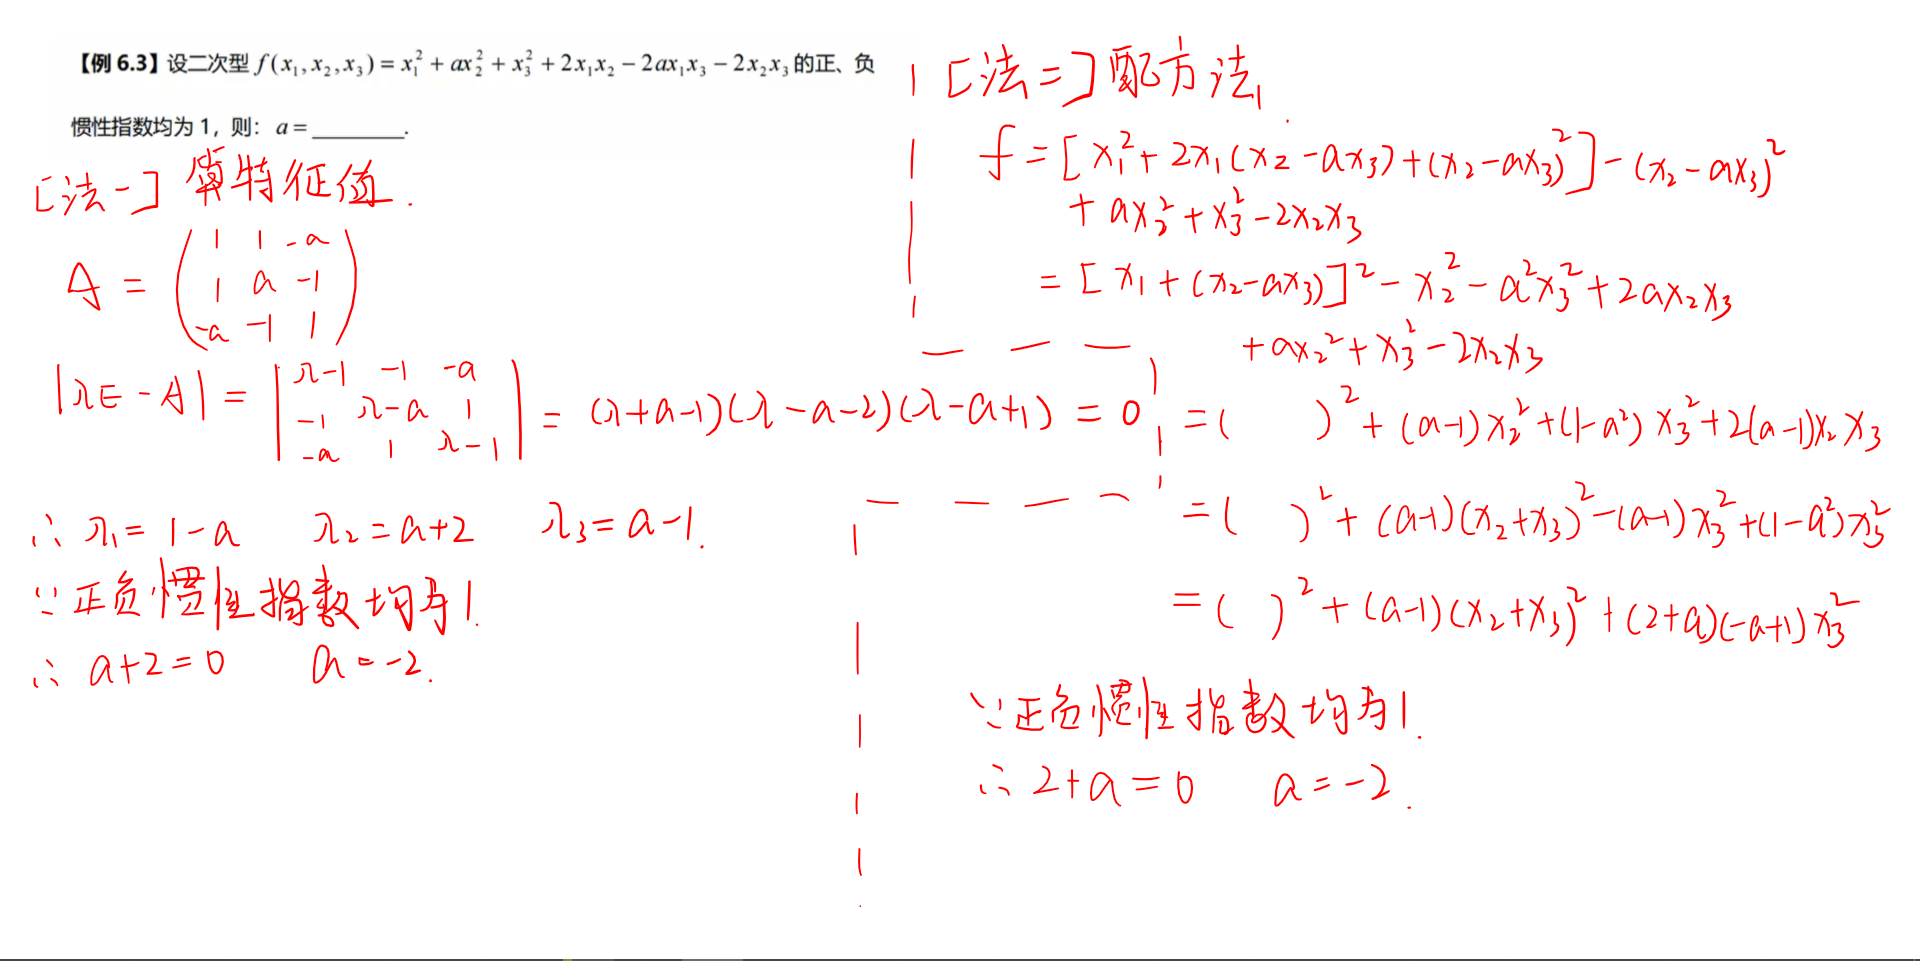 【例 6.3】设二次型 f(x₁,x₂,x₃) = x₁² + ax₂² + x₃² + 2x₁x₂ − 2ax₁x₃ − 2x₂x₃ 的正、负
惯性指数均为 1，则：a = ________.
[法一] 算特征值.
A = ( 1 1 -a
1 a -1
-a -1 1 )
|λE - A| = | λ-1 -1 -a
-1 λ-a 1
-a 1 λ-1 | = (λ+a-1)(λ-a-2)(λ-a+1) = 0
∴ λ₁ = 1-a λ₂ = a+2 λ₃ = a-1.
∵ 正负惯性指数均为1.
∴ a+2=0 a=-2.
[法二] 配方法
f = [x₁² + 2x₁(x₂-ax₃) + (x₂-ax₃)²] - (x₂-ax₃)²
+ ax₂² + x₃² - 2x₂x₃
= [x₁ + (x₂-ax₃)]² - x₂² - a²x₃² + 2ax₂x₃
+ ax₂² + x₃² - 2x₂x₃
= ( )² + (a-1)x₂² + (1-a²)x₃² + 2(a-1)x₂x₃
= ( )² + (a-1)(x₂+x₃)² - (a-1)x₃² + (1-a²)x₃²
= ( )² + (a-1)(x₂+x₃)² + (2+a)(-a+1)x₃²
∵ 正负惯性指数均为1.
∴ 2+a=0 a=-2.